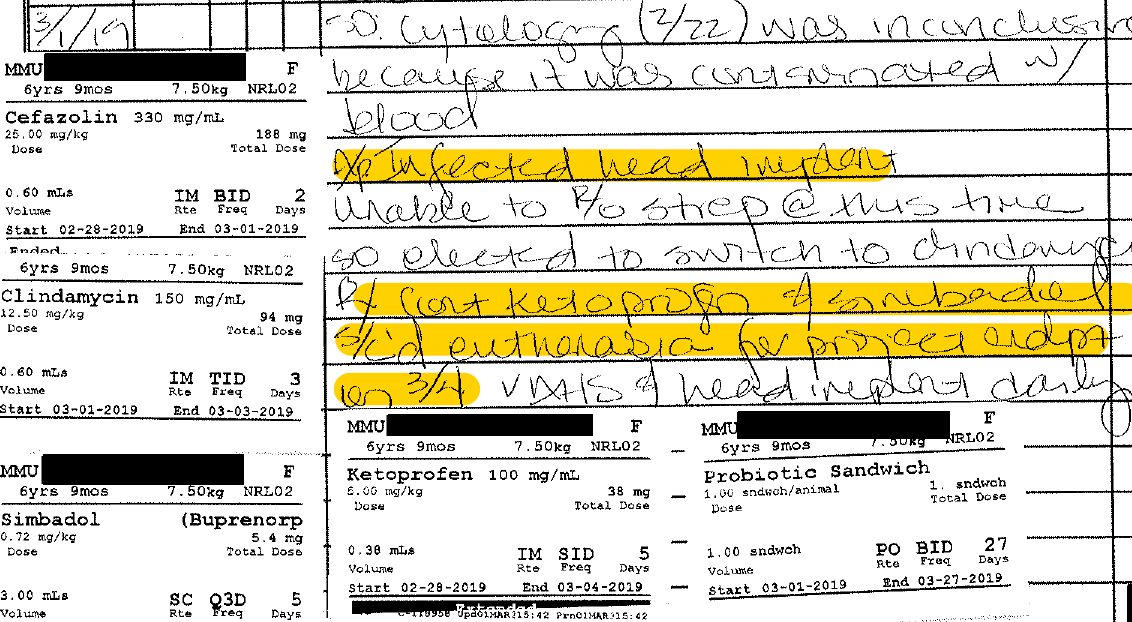 3/1/19
SO: Cytology (2/22) was inconclusive
because it was contaminated w/
blood
Dx: Infected head implant
Unable to R/o strep @ this time
so elected to switch to clindamyc
Rx cont ketoprofen & simbadol
s/c'd euthanasia for project endpt
on 3/4 VMHS & head implant daily
MMU F
6yrs 9mos 7.50kg NRL02
Cefazolin 330 mg/mL
25.00 mg/kg 188 mg
Dose Total Dose
0.60 mLs IM BID 2
Volume Rte Freq Days
Start 02-28-2019 End 03-01-2019
Ended
6yrs 9mos 7.50kg NRL02
Clindamycin 150 mg/mL
12.50 mg/kg 94 mg
Dose Total Dose
0.60 mLs IM TID 3
Volume Rte Freq Days
Start 03-01-2019 End 03-03-2019
MMU F
6yrs 9mos 7.50kg NRL02
Simbadol (Buprenorp
0.72 mg/kg 5.4 mg
Dose Total Dose
3.00 mLs SC Q3D 5
Volume Rte Freq Days
MMU F
6yrs 9mos 7.50kg NRL02
Ketoprofen 100 mg/mL
5.00 mg/kg 38 mg
Dose Total Dose
0.38 mLs IM SID 5
Volume Rte Freq Days
Start 02-28-2019 End 03-04-2019
Extended
Upd01MAR15:42 Prn01MAR15:42
MMU F
6yrs 9mos 7.50kg NRL02
Probiotic Sandwich
1.00 sndwch/animal 1. sndwch
Dose Total Dose
1.00 sndwch PO BID 27
Volume Rte Freq Days
Start 03-01-2019 End 03-27-2019